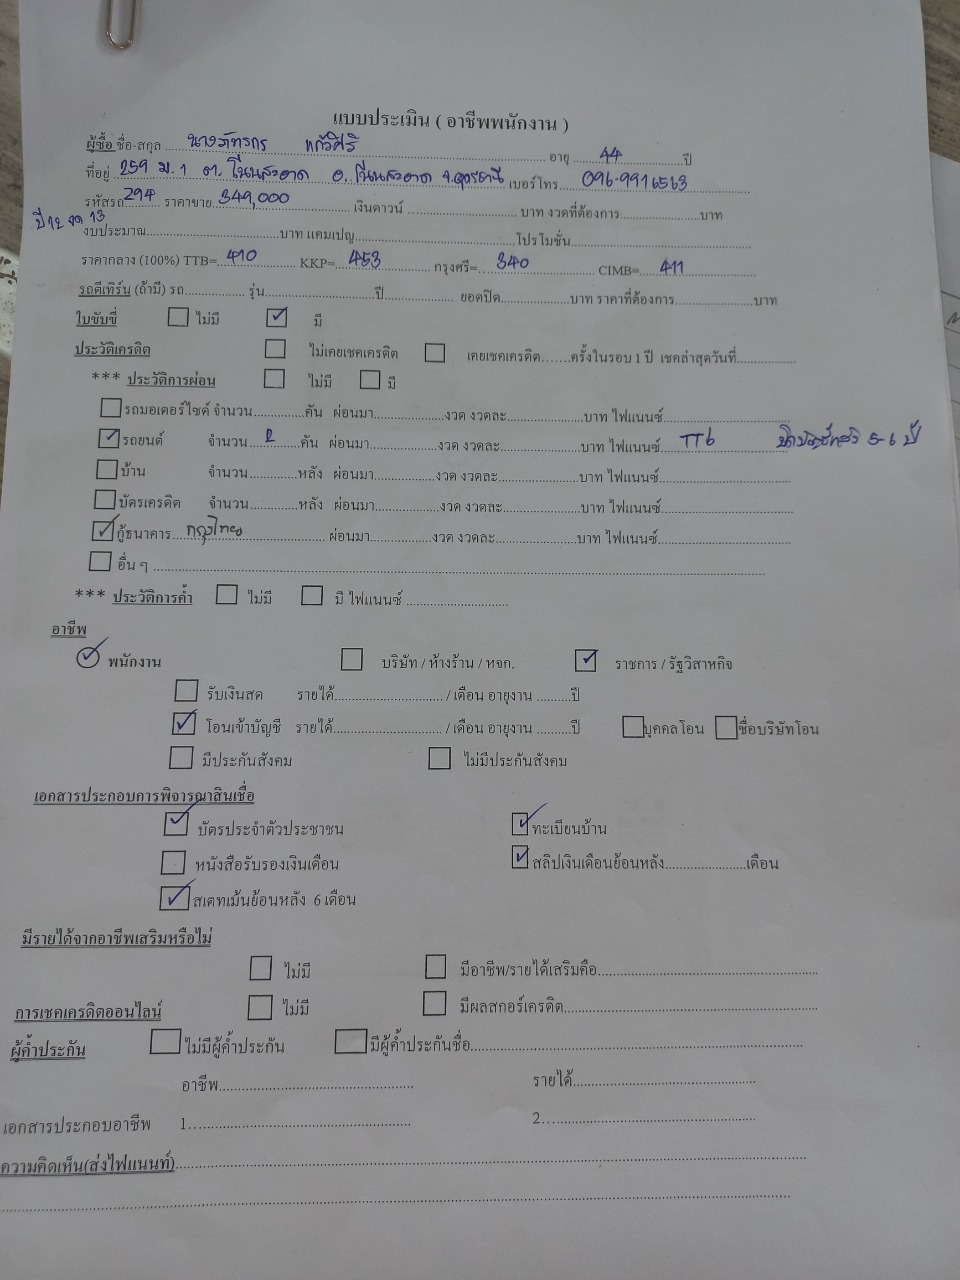 แบบประเมิน ( อาชีพพนักงาน )
ผู้ซื้อ ชื่อ-สกุล ..... นางภัทรกร แก้วศิริ ..... อายุ ..... 44 ..... ปี
ที่อยู่ 259 ม.1 ต. โนนสะอาด อ. โนนสะอาด จ.อุดรธานี เบอร์โทร... 096-9916563
รหัสรถ 294 ราคาขาย 349,000 ..... เงินดาวน์ ..... บาท งวดที่ต้องการ ..... บาท
ปี 12 จด 13
งบประมาณ ..... บาท แคมเปญ ..... โปรโมชั่น .....
ราคากลาง (100%) TTB= 410 ..... KKP= 453 ..... กรุงศรี= 340 ..... CIMB= 411 .....
รถตีเทิร์น (ถ้ามี) รถ ..... รุ่น ..... ปี ..... ยอดปิด ..... บาท ราคาที่ต้องการ ..... บาท
ใบขับขี่ ไม่มี ✓ มี
ประวัติเครดิต ไม่เคยเชคเครดิต เคยเชคเครดิต.......ครั้งในรอบ 1 ปี เชคล่าสุดวันที่.....
*** ประวัติการผ่อน ไม่มี มี
รถมอเตอร์ไซค์ จำนวน ..... คัน ผ่อนมา ..... งวด งวดละ ..... บาท ไฟแนนซ์ .....
✓ รถยนต์ จำนวน 2 คัน ผ่อนมา ..... งวด งวดละ ..... บาท ไฟแนนซ์ TTb 5-6 ปี
บ้าน จำนวน ..... หลัง ผ่อนมา ..... งวด งวดละ ..... บาท ไฟแนนซ์ .....
บัตรเครดิต จำนวน ..... หลัง ผ่อนมา ..... งวด งวดละ ..... บาท ไฟแนนซ์ .....
✓ กู้ธนาคาร กรุงไทย ..... ผ่อนมา ..... งวด งวดละ ..... บาท ไฟแนนซ์ .....
อื่น ๆ .....
*** ประวัติการค้ำ ไม่มี มี ไฟแนนซ์ .....
อาชีพ
✓ พนักงาน บริษัท / ห้างร้าน / หจก. ✓ ราชการ / รัฐวิสาหกิจ
รับเงินสด รายได้ ..... / เดือน อายุงาน ..... ปี
✓ โอนเข้าบัญชี รายได้ ..... / เดือน อายุงาน ..... ปี บุคคลโอน ชื่อบริษัทโอน
มีประกันสังคม ไม่มีประกันสังคม
เอกสารประกอบการพิจารณาสินเชื่อ
✓ บัตรประจำตัวประชาชน ✓ ทะเบียนบ้าน
หนังสือรับรองเงินเดือน ✓ สลิปเงินเดือนย้อนหลัง ..... เดือน
✓ สเตทเม้นย้อนหลัง 6 เดือน
มีรายได้จากอาชีพเสริมหรือไม่
ไม่มี มีอาชีพ/รายได้เสริมคือ .....
การเชคเครดิตออนไลน์ ไม่มี มีผลสกอร์เครดิต .....
ผู้ค้ำประกัน ไม่มีผู้ค้ำประกัน มีผู้ค้ำประกันชื่อ .....
อาชีพ ..... รายได้ .....
เอกสารประกอบอาชีพ 1..... 2.....
ความคิดเห็น(ส่งไฟแนนท์) .....